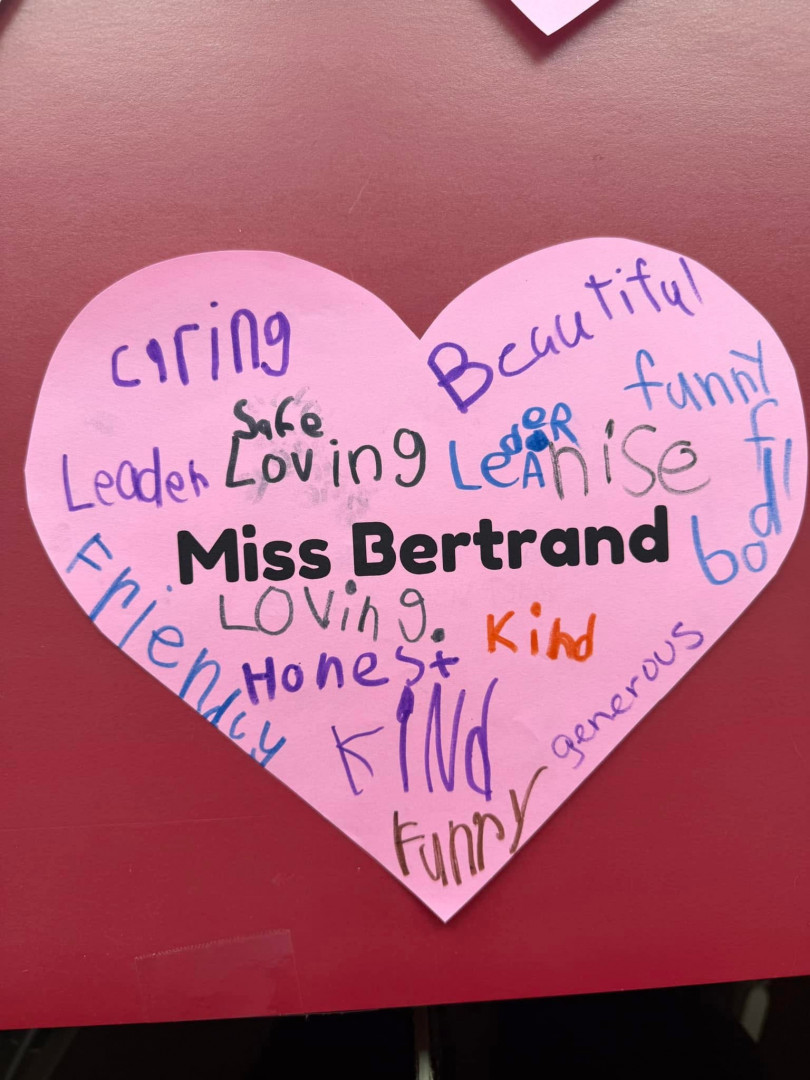 caring
Beautiful
funny
Safe
Leader
Loving
LeadeR
nise
Miss Bertrand
Friendly
Loving.
Kind
Honest
KiNd
generous
Funny